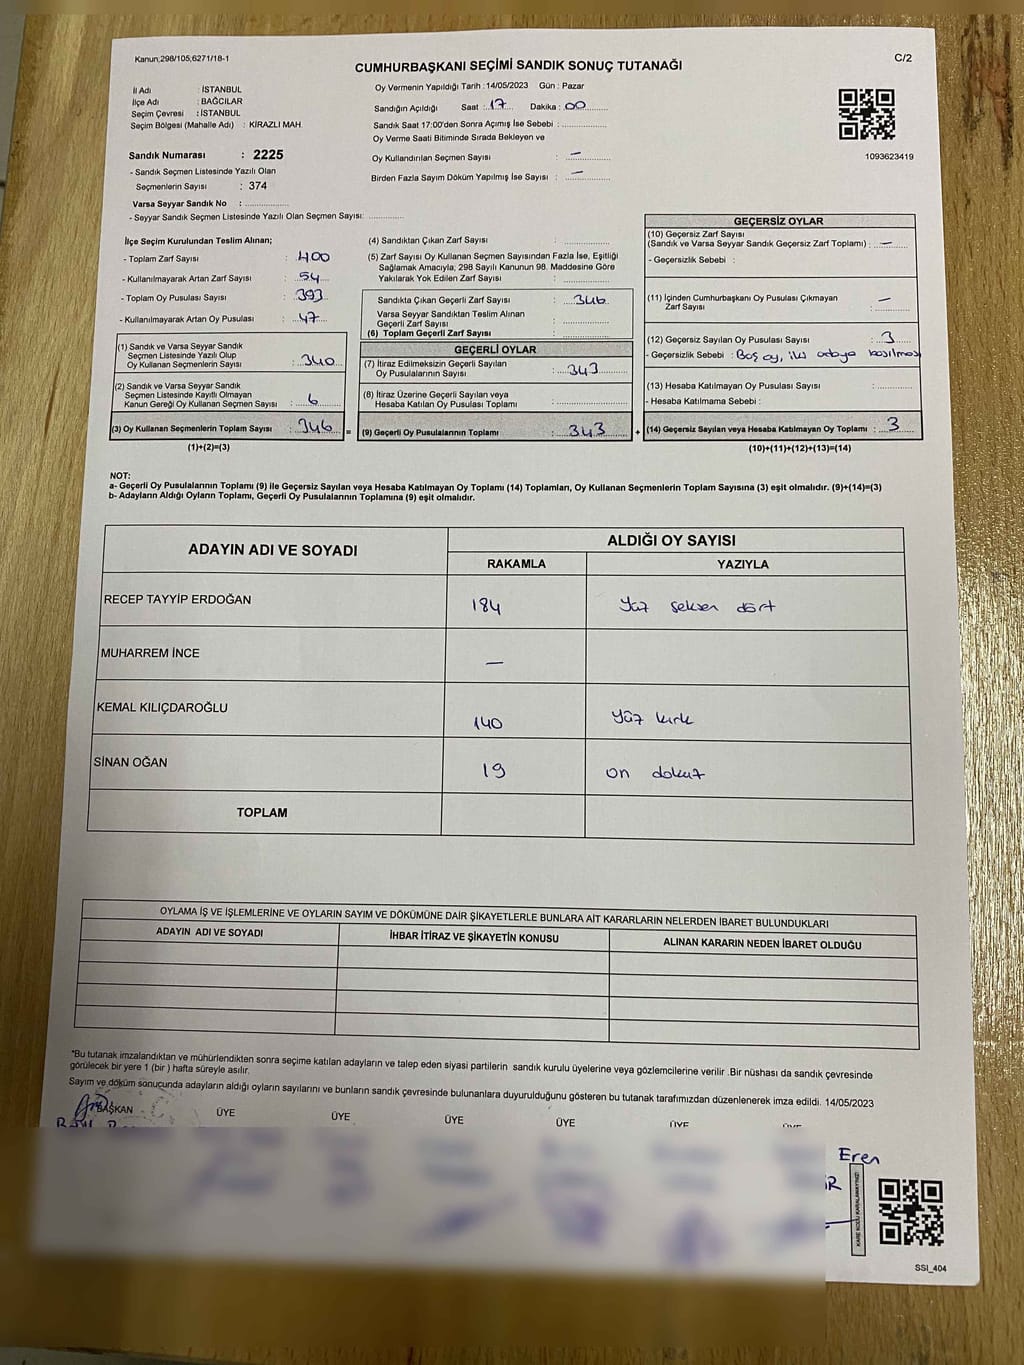 Kanun;298/105;6271/18-1
C/2
CUMHURBAŞKANI SEÇİMİ SANDIK SONUÇ TUTANAĞI
İl Adı : İSTANBUL
İlçe Adı : BAĞCILAR
Seçim Çevresi : İSTANBUL
Seçim Bölgesi (Mahalle Adı) : KİRAZLI MAH.
Sandık Numarası : 2225
- Sandık Seçmen Listesinde Yazılı Olan
Seçmenlerin Sayısı : 374
Varsa Seyyar Sandık No :
- Seyyar Sandık Seçmen Listesinde Yazılı Olan Seçmen Sayısı:
Oy Vermenin Yapıldığı Tarih :14/05/2023 Gün : Pazar
Sandığın Açıldığı Saat : 17 Dakika : 00
Sandık Saat 17:00'den Sonra Açımış İse Sebebi :
Oy Verme Saati Bitiminde Sırada Bekleyen ve
Oy Kullandırılan Seçmen Sayısı : —
Birden Fazla Sayım Döküm Yapılmış İse Sayısı : —
1093623419
İlçe Seçim Kurulundan Teslim Alınan;
- Toplam Zarf Sayısı : 400
- Kullanılmayarak Artan Zarf Sayısı : 54
- Toplam Oy Pusulası Sayısı : 393
- Kullanılmayarak Artan Oy Pusulası : 47
(1) Sandık ve Varsa Seyyar Sandık
Seçmen Listesinde Yazılı Olup
Oy Kullanan Seçmenlerin Sayısı : 340
(2) Sandık ve Varsa Seyyar Sandık
Seçmen Listesinde Kayıtlı Olmayan
Kanun Gereği Oy Kullanan Seçmen Sayısı : 6
(3) Oy Kullanan Seçmenlerin Toplam Sayısı : 346 =
(1)+(2)=(3)
(4) Sandıktan Çıkan Zarf Sayısı :
(5) Zarf Sayısı Oy Kullanan Seçmen Sayısından Fazla İse, Eşitliği
Sağlamak Amacıyla; 298 Sayılı Kanunun 98. Maddesine Göre
Yakılarak Yok Edilen Zarf Sayısı :
Sandıkta Çıkan Geçerli Zarf Sayısı : 346
Varsa Seyyar Sandıktan Teslim Alınan
Geçerli Zarf Sayısı :
(6) Toplam Geçerli Zarf Sayısı :
GEÇERLİ OYLAR
(7) İtiraz Edilmeksizin Geçerli Sayılan
Oy Pusulalarının Sayısı : 343
(8) İtiraz Üzerine Geçerli Sayılan veya
Hesaba Katılan Oy Pusulası Toplamı :
(9) Geçerli Oy Pusulalarının Toplamı : 343 +
GEÇERSİZ OYLAR
(10) Geçersiz Zarf Sayısı
(Sandık ve Varsa Seyyar Sandık Geçersiz Zarf Toplamı) : —
- Geçersizlik Sebebi :
(11) İçinden Cumhurbaşkanı Oy Pusulası Çıkmayan
Zarf Sayısı : —
(12) Geçersiz Sayılan Oy Pusulası Sayısı : 3
- Geçersizlik Sebebi : Boş oy, iki adaya basılması
(13) Hesaba Katılmayan Oy Pusulası Sayısı :
- Hesaba Katılmama Sebebi :
(14) Geçersiz Sayılan veya Hesaba Katılmayan Oy Toplamı : 3
(10)+(11)+(12)+(13)=(14)
NOT:
a- Geçerli Oy Pusulalarının Toplamı (9) ile Geçersiz Sayılan veya Hesaba Katılmayan Oy Toplamı (14) Toplamları, Oy Kullanan Seçmenlerin Toplam Sayısına (3) eşit olmalıdır. (9)+(14)=(3)
b- Adayların Aldığı Oyların Toplamı, Geçerli Oy Pusulalarının Toplamına (9) eşit olmalıdır.
ADAYIN ADI VE SOYADI ALDIĞI OY SAYISI
RAKAMLA YAZIYLA
RECEP TAYYİP ERDOĞAN 184 Yüz seksen dört
MUHARREM İNCE —
KEMAL KILIÇDAROĞLU 140 Yüz kırk
SİNAN OĞAN 19 on dokuz
TOPLAM
OYLAMA İŞ VE İŞLEMLERİNE VE OYLARIN SAYIM VE DÖKÜMÜNE DAİR ŞİKAYETLERLE BUNLARA AİT KARARLARIN NELERDEN İBARET BULUNDUKLARI
ADAYIN ADI VE SOYADI İHBAR İTİRAZ VE ŞİKAYETİN KONUSU ALINAN KARARIN NEDEN İBARET OLDUĞU
*Bu tutanak imzalandıktan ve mühürlendikten sonra seçime katılan adayların ve talep eden siyasi partilerin sandık kurulu üyelerine veya gözlemcilerine verilir .Bir nüshası da sandık çevresinde
görülecek bir yere 1 (bir ) hafta süreyle asılır.
Sayım ve döküm sonucunda adayların aldığı oyların sayılarını ve bunların sandık çevresinde bulunanlara duyurulduğunu gösteren bu tutanak tarafımızdan düzenlenerek imza edildi. 14/05/2023
BAŞKAN ÜYE ÜYE ÜYE ÜYE ÜYE ÜYE
Eren
KARE KODU KARALAMAYINIZ!
SSI_404